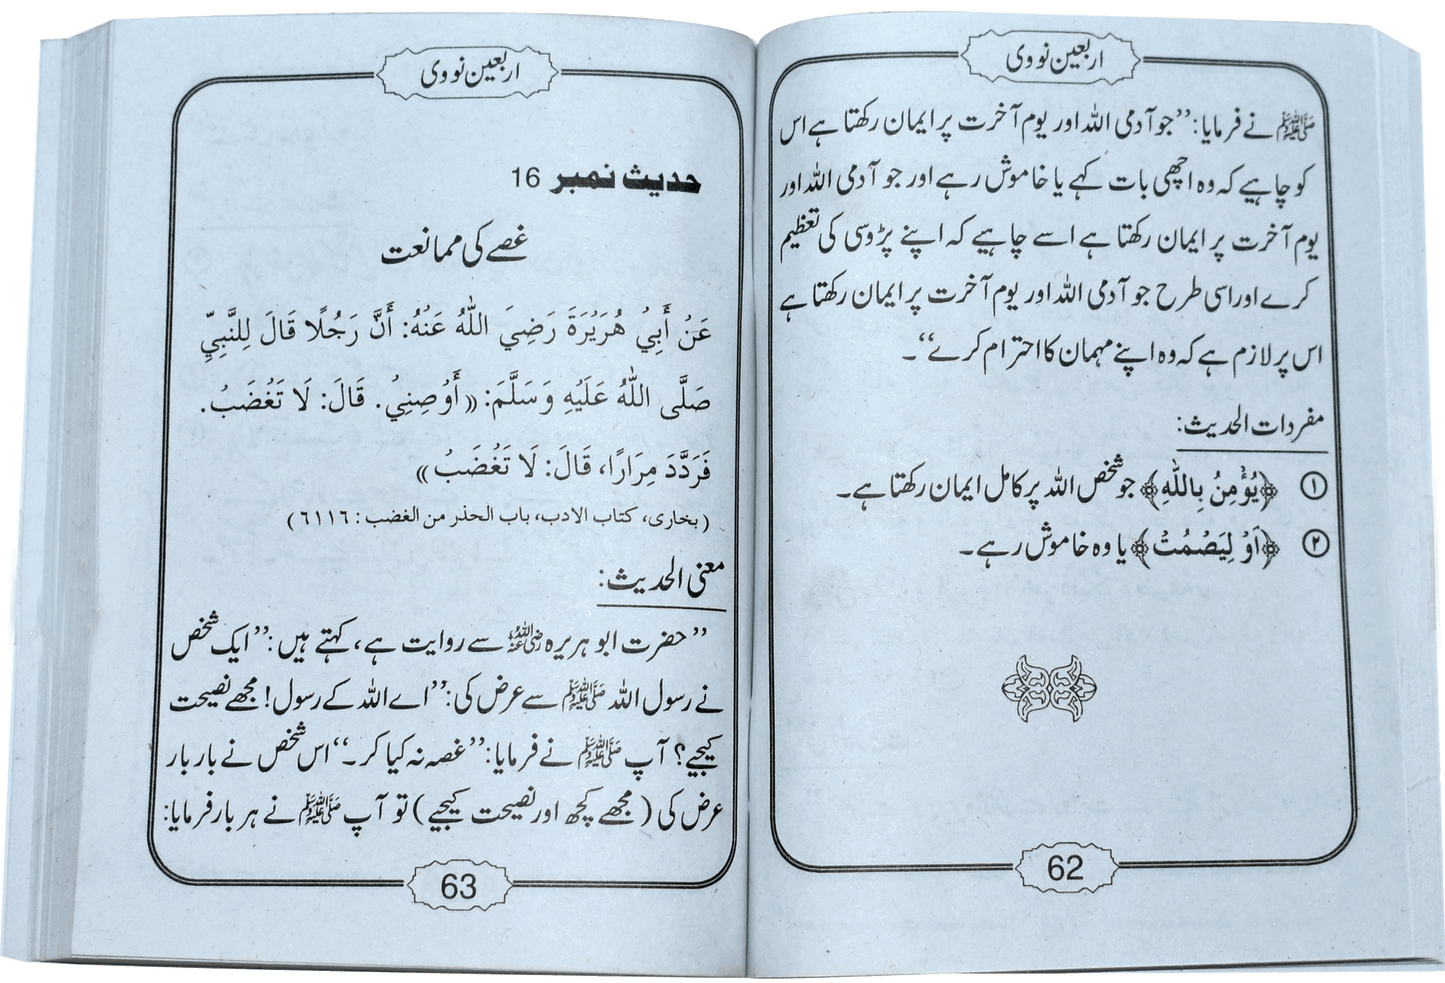 اربعین نووی
ﷺ نے فرمایا: ’’جو آدمی اللہ اور یوم آخرت پر ایمان رکھتا ہے اس
کو چاہیے کہ وہ اچھی بات کہے یا خاموش رہے اور جو آدمی اللہ اور
یوم آخرت پر ایمان رکھتا ہے اسے چاہیے کہ اپنے پڑوسی کی تعظیم
کرے اور اسی طرح جو آدمی اللہ اور یوم آخرت پر ایمان رکھتا ہے
اس پر لازم ہے کہ وہ اپنے مہمان کا احترام کرے‘‘۔
مفردات الحدیث:
① ﴿يُؤْمِنُ بِاللّٰهِ﴾ جو شخص اللہ پر کامل ایمان رکھتا ہے۔
② ﴿اَوْ لِيَصْمُتْ﴾ یا وہ خاموش رہے۔
62
اربعین نووی
حدیث نمبر 16
غصے کی ممانعت
عَنْ أَبِيْ هُرَيْرَةَ رَضِيَ اللّٰهُ عَنْهُ: أَنَّ رَجُلًا قَالَ لِلنَّبِيِّ
صَلَّى اللّٰهُ عَلَيْهِ وَسَلَّمَ: «أَوْصِنِيْ. قَالَ: لَا تَغْضَبْ.
فَرَدَّدَ مِرَارًا، قَالَ: لَا تَغْضَبْ»
(بخاری، کتاب الادب، باب الحذر من الغضب: ٦١١٦)
معنی الحدیث:
’’حضرت ابو ہریرہ رضی اللہ عنہ سے روایت ہے، کہتے ہیں: ’’ایک شخص
نے رسول اللہ ﷺ سے عرض کی: ’’اے اللہ کے رسول! مجھے نصیحت
کیجیے؟ آپ ﷺ نے فرمایا: ’’غصہ نہ کیا کر۔‘‘ اس شخص نے بار بار
عرض کی (مجھے کچھ اور نصیحت کیجیے) تو آپ ﷺ نے ہر بار فرمایا:
63